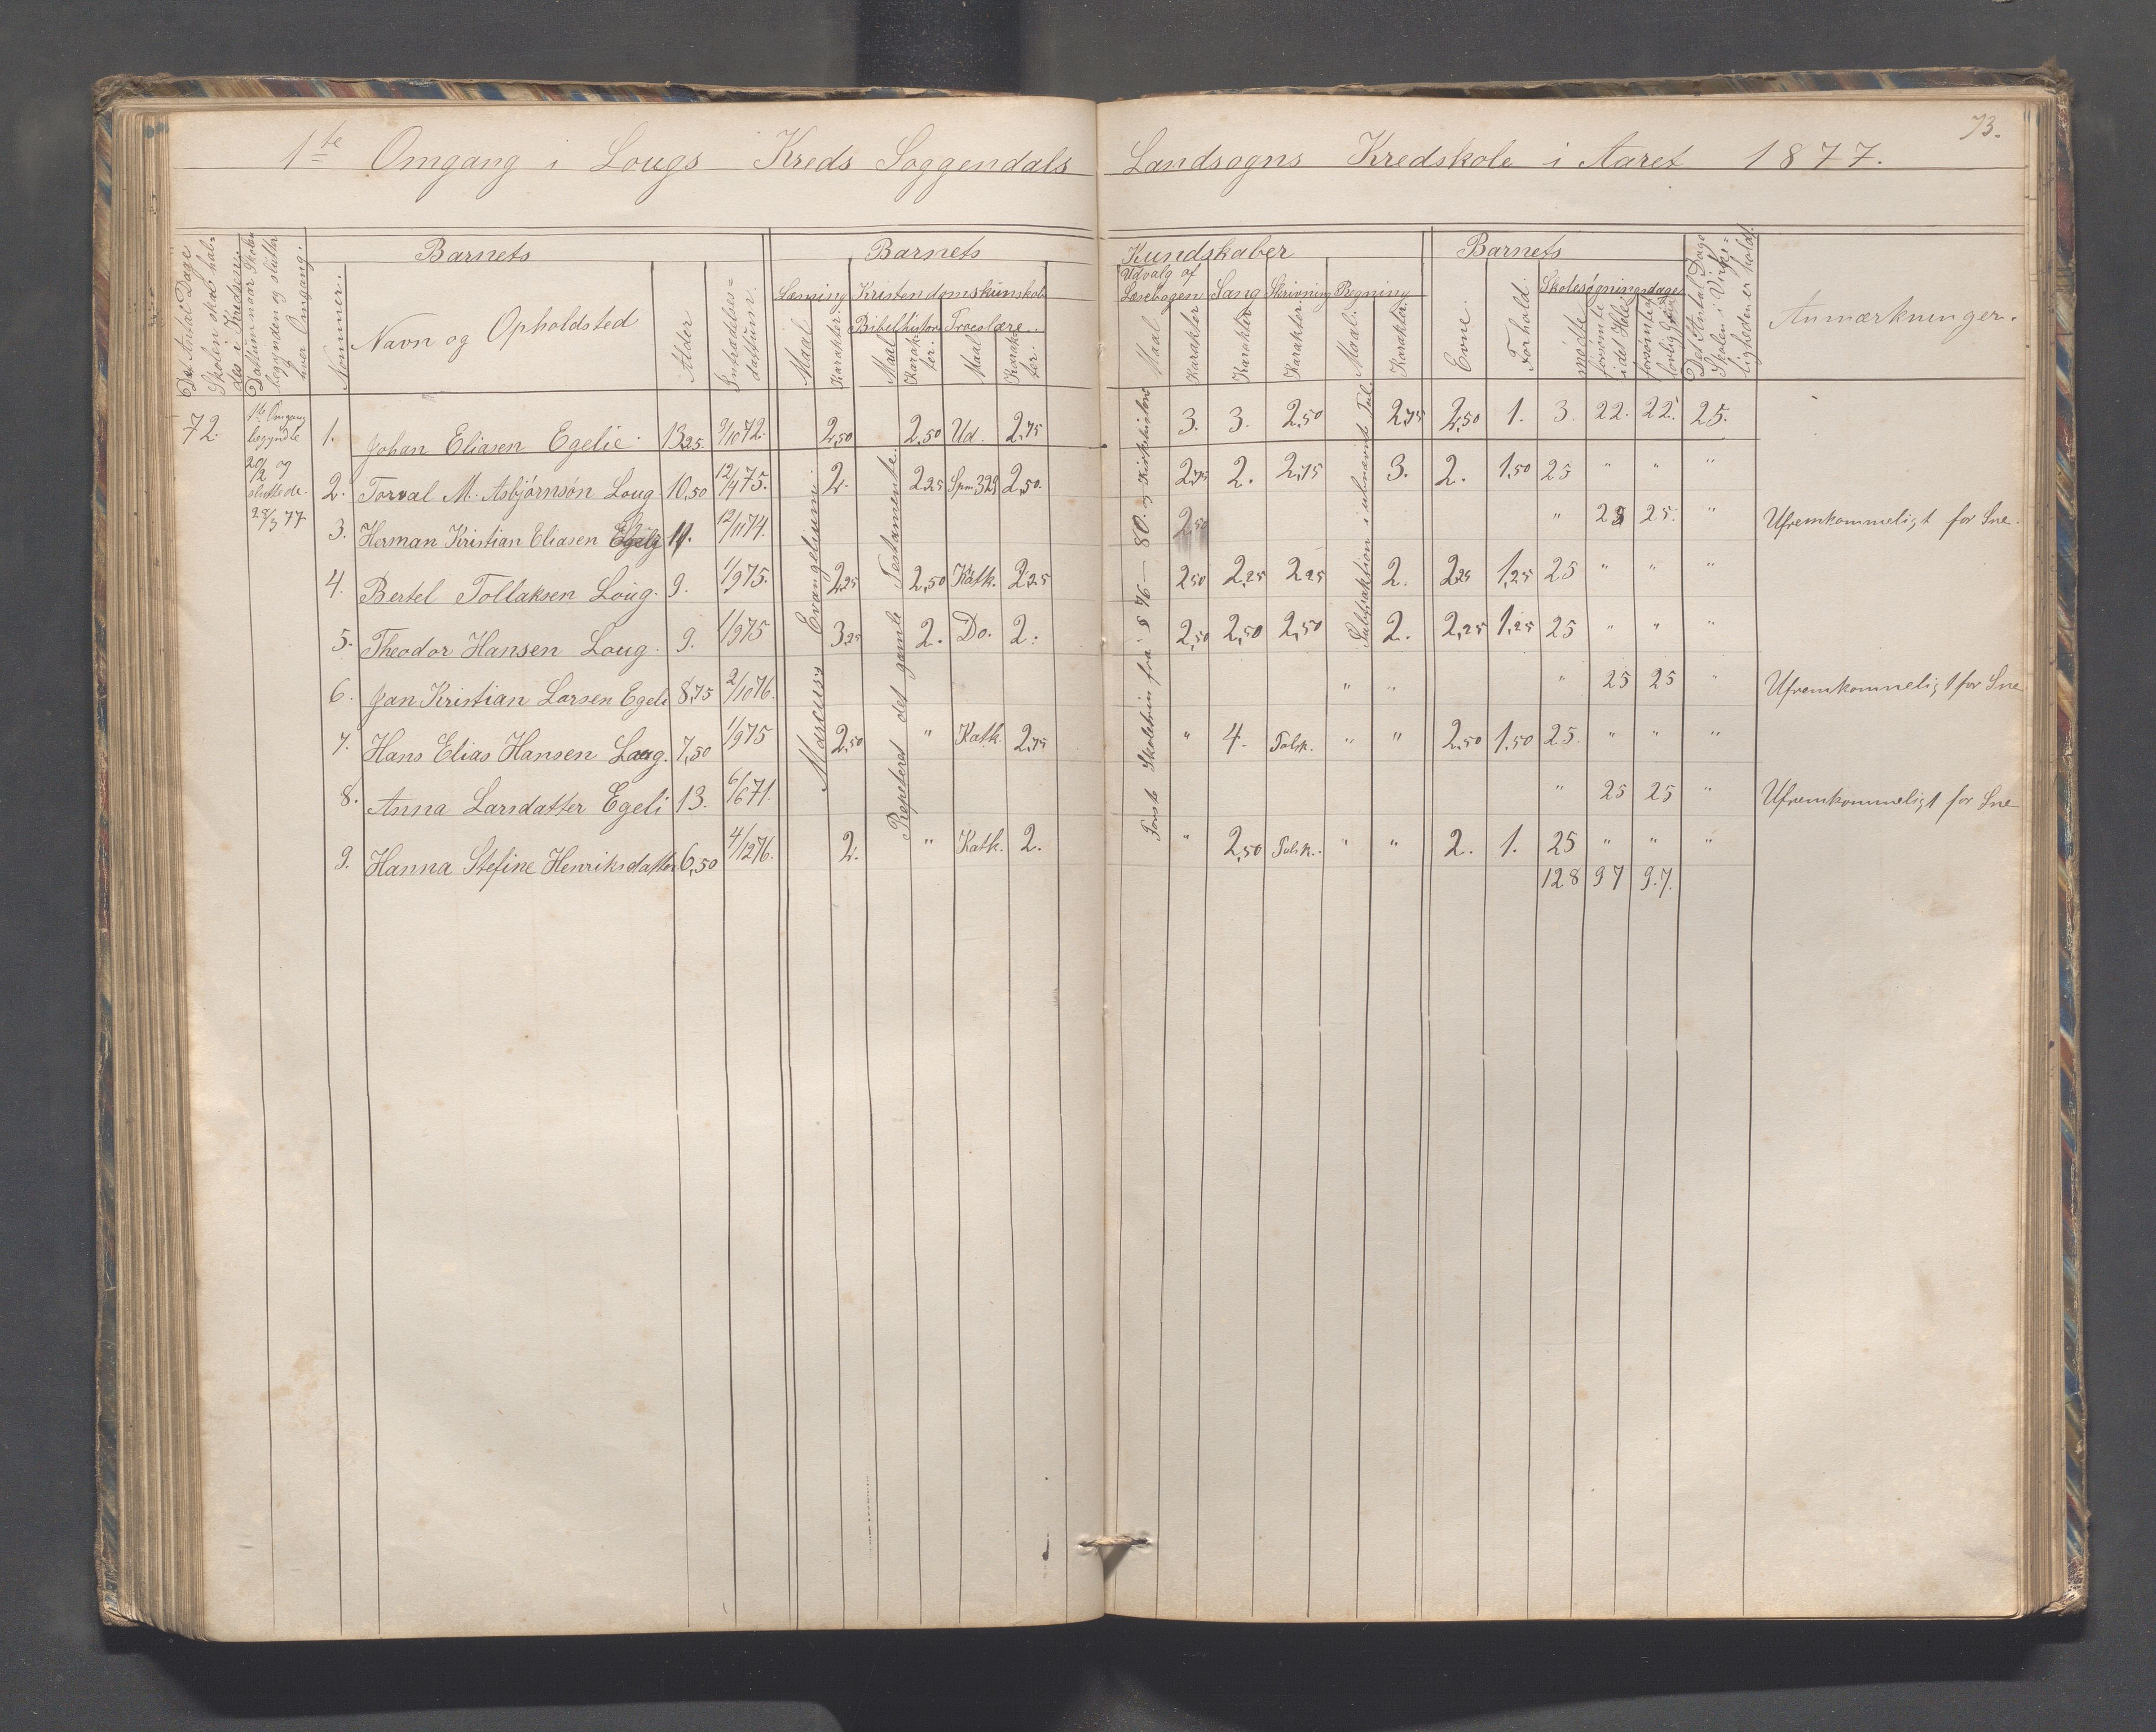 73.
1te Omgang i Lougs Kreds Soggendals Landsogns Kredskole i Aaret 1877.
Det Antal Dage Skolen skal holdes i Kredsen
Dattum naar Skolen begynden og slutter hver Omgang.
Nommer.
Barnets
Navn og Opholdsted
Alder
Indtrædelses-dattum.
Barnets Kundskaber
Læsning
Maal
Karakter
Kristendomskunskab
Bibelhistorie
Maal
Karakter.
Troeslære.
Maal
Karakter.
Udvalg af Læsebogen
Maal
Karakter
Sang
Karakter
Skrivning
Karakter.
Regning
Maal.
Karakter.
Barnets
Evne.
Forhold
Skolesøgningsdage
mødte
forsømte i det Hele
forsømt af lovlig Grund
Det Antal Dage Skolen i Virkeligheden er holdt.
Anmærkninger.
72.
1te Omgang begyndte 20/2 og sluttede. 28/3 77
Marcuss Evangelium
Repeteret det gamle Testamente.
Første Skoletrin fra § 76 — 80. og Kirkehistorie
Subtraktion i ubenævnte Tal.
1. Johan Eliasen Egelie. 13,25. 9/10 72. 2,50 2,50 Ud. 2,75 3. 3. 2,50 2,75 2,50 1. 3. 22. 22. 25.
2. Torval M. Asbjørnsøn Loug. 10,50 12/4 75. 2. 2,25 Spm 329 2,50. 2,75 2. 2,75 3. 2. 1,50 25 " " "
3. Herman Kristian Eliasen Egelie 11. 12/11 74. 2,50 " 25 25. " Ufremkommeligt for Sne.
4. Bertel Tollaksen Loug. 9. 1/9 75. 2,25 2,50 Katk. 2,25 2,50 2,25 2,25 2. 2,25 1,25 25 " " "
5. Theodor Hansen Loug. 9. 1/9 75 3,25 2. Do. 2. 2,50 2,50 2,50 2. 2,25 1,25 25 " " "
6. Jan Kristian Larsen Egeli 8,75 2/10 76. " " " 25 25 " Ufremkommeligt for Sne
7. Hans Elias Hansen Loug. 7,50 1/9 75 2,50 " Katk. 2,75 " 4. Talsk. " " 2,50 1,50 25. " " "
8. Anna Larsdatter Egeli 13. 6/6 71. " 25 25 " Ufremkommeligt for Sne
9. Hanna Stefine Henriksdatter 6,50 4/12 76. 2. " Katk. 2. " 2,50 Talsk. " " 2. 1. 25 " " "
128 97 97.